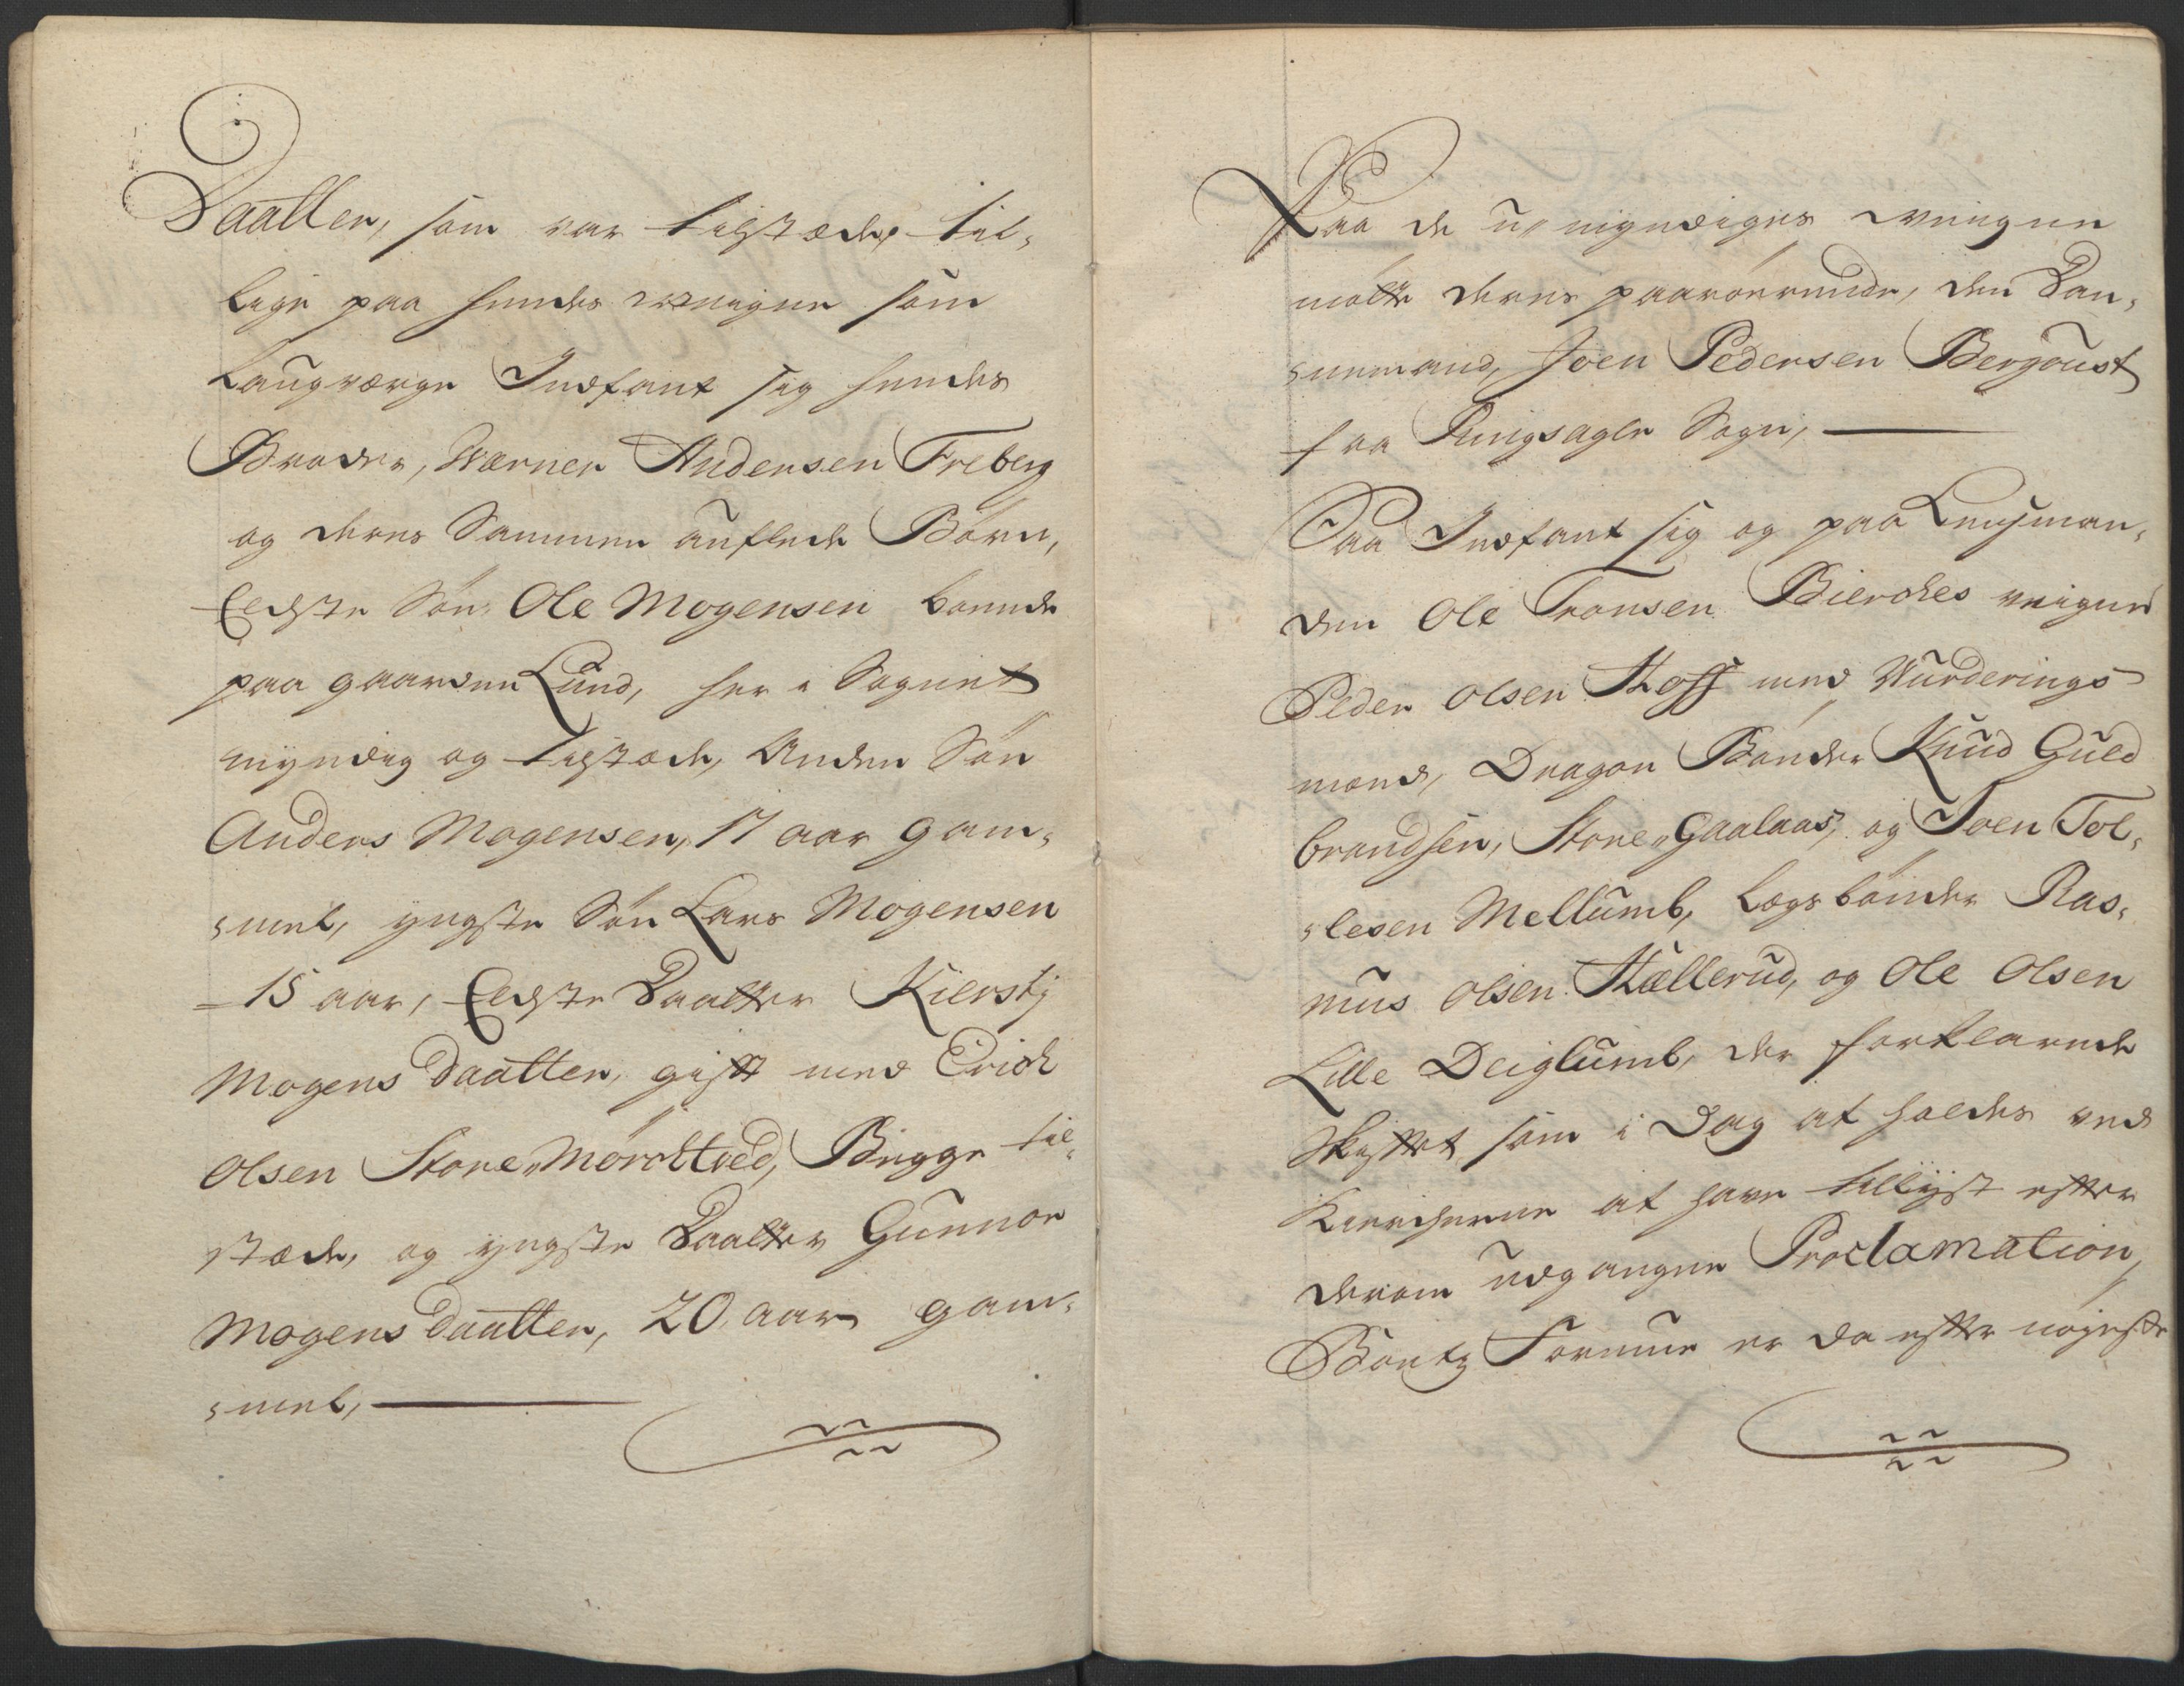 Daatter, som var tilstæde, til,
lige paa hendes weigne som
Laugværge Indfant sig hendes
Broder, Værner Andersen Freberg
og deres Sammen auflede Børn,
Eedste Søn Ole Mogensen boende
paa gaarden Lund, her i Sognet
myndig og tilstæde, Anden Søn
Anders Mogensen, 17 aar gam,
,mel, yngste Søn Lars Mogensen
15 aar, Eedste Daatter Kiersty
Mogens Daatter, gift med Erich
Olsen Store Mörchved, Begge til,
stæde, og yngste Daatter Gunnor
Mogens Daatter, 20 aar gam,
,mel,
Paa de u-myndiges weigne
mötte deres paarörende, den Dan,
,nemand, Joen Pedersen Bergoust
fra Ringsager Sogn,
Saa Indfant sig og paa Lensman,
den Ole Tronsen Bierches veigne
Peder Olsen Hoff med Vurderings
mænd, Dragon Bönder Knud Guld
brandsen, Store Gaalaas, og Joen Tol,
,lesen Mellumb, Legsbönder Ras,
mus Olsen Kællerud, og Ole Olsen
Lille Deiglumb, der forklarede
Skiftet som i Dag at holdes ved
Kircherne at have tillyst efter
derom udgangne Proclamation,
Boets Formue er da efter nöjeste